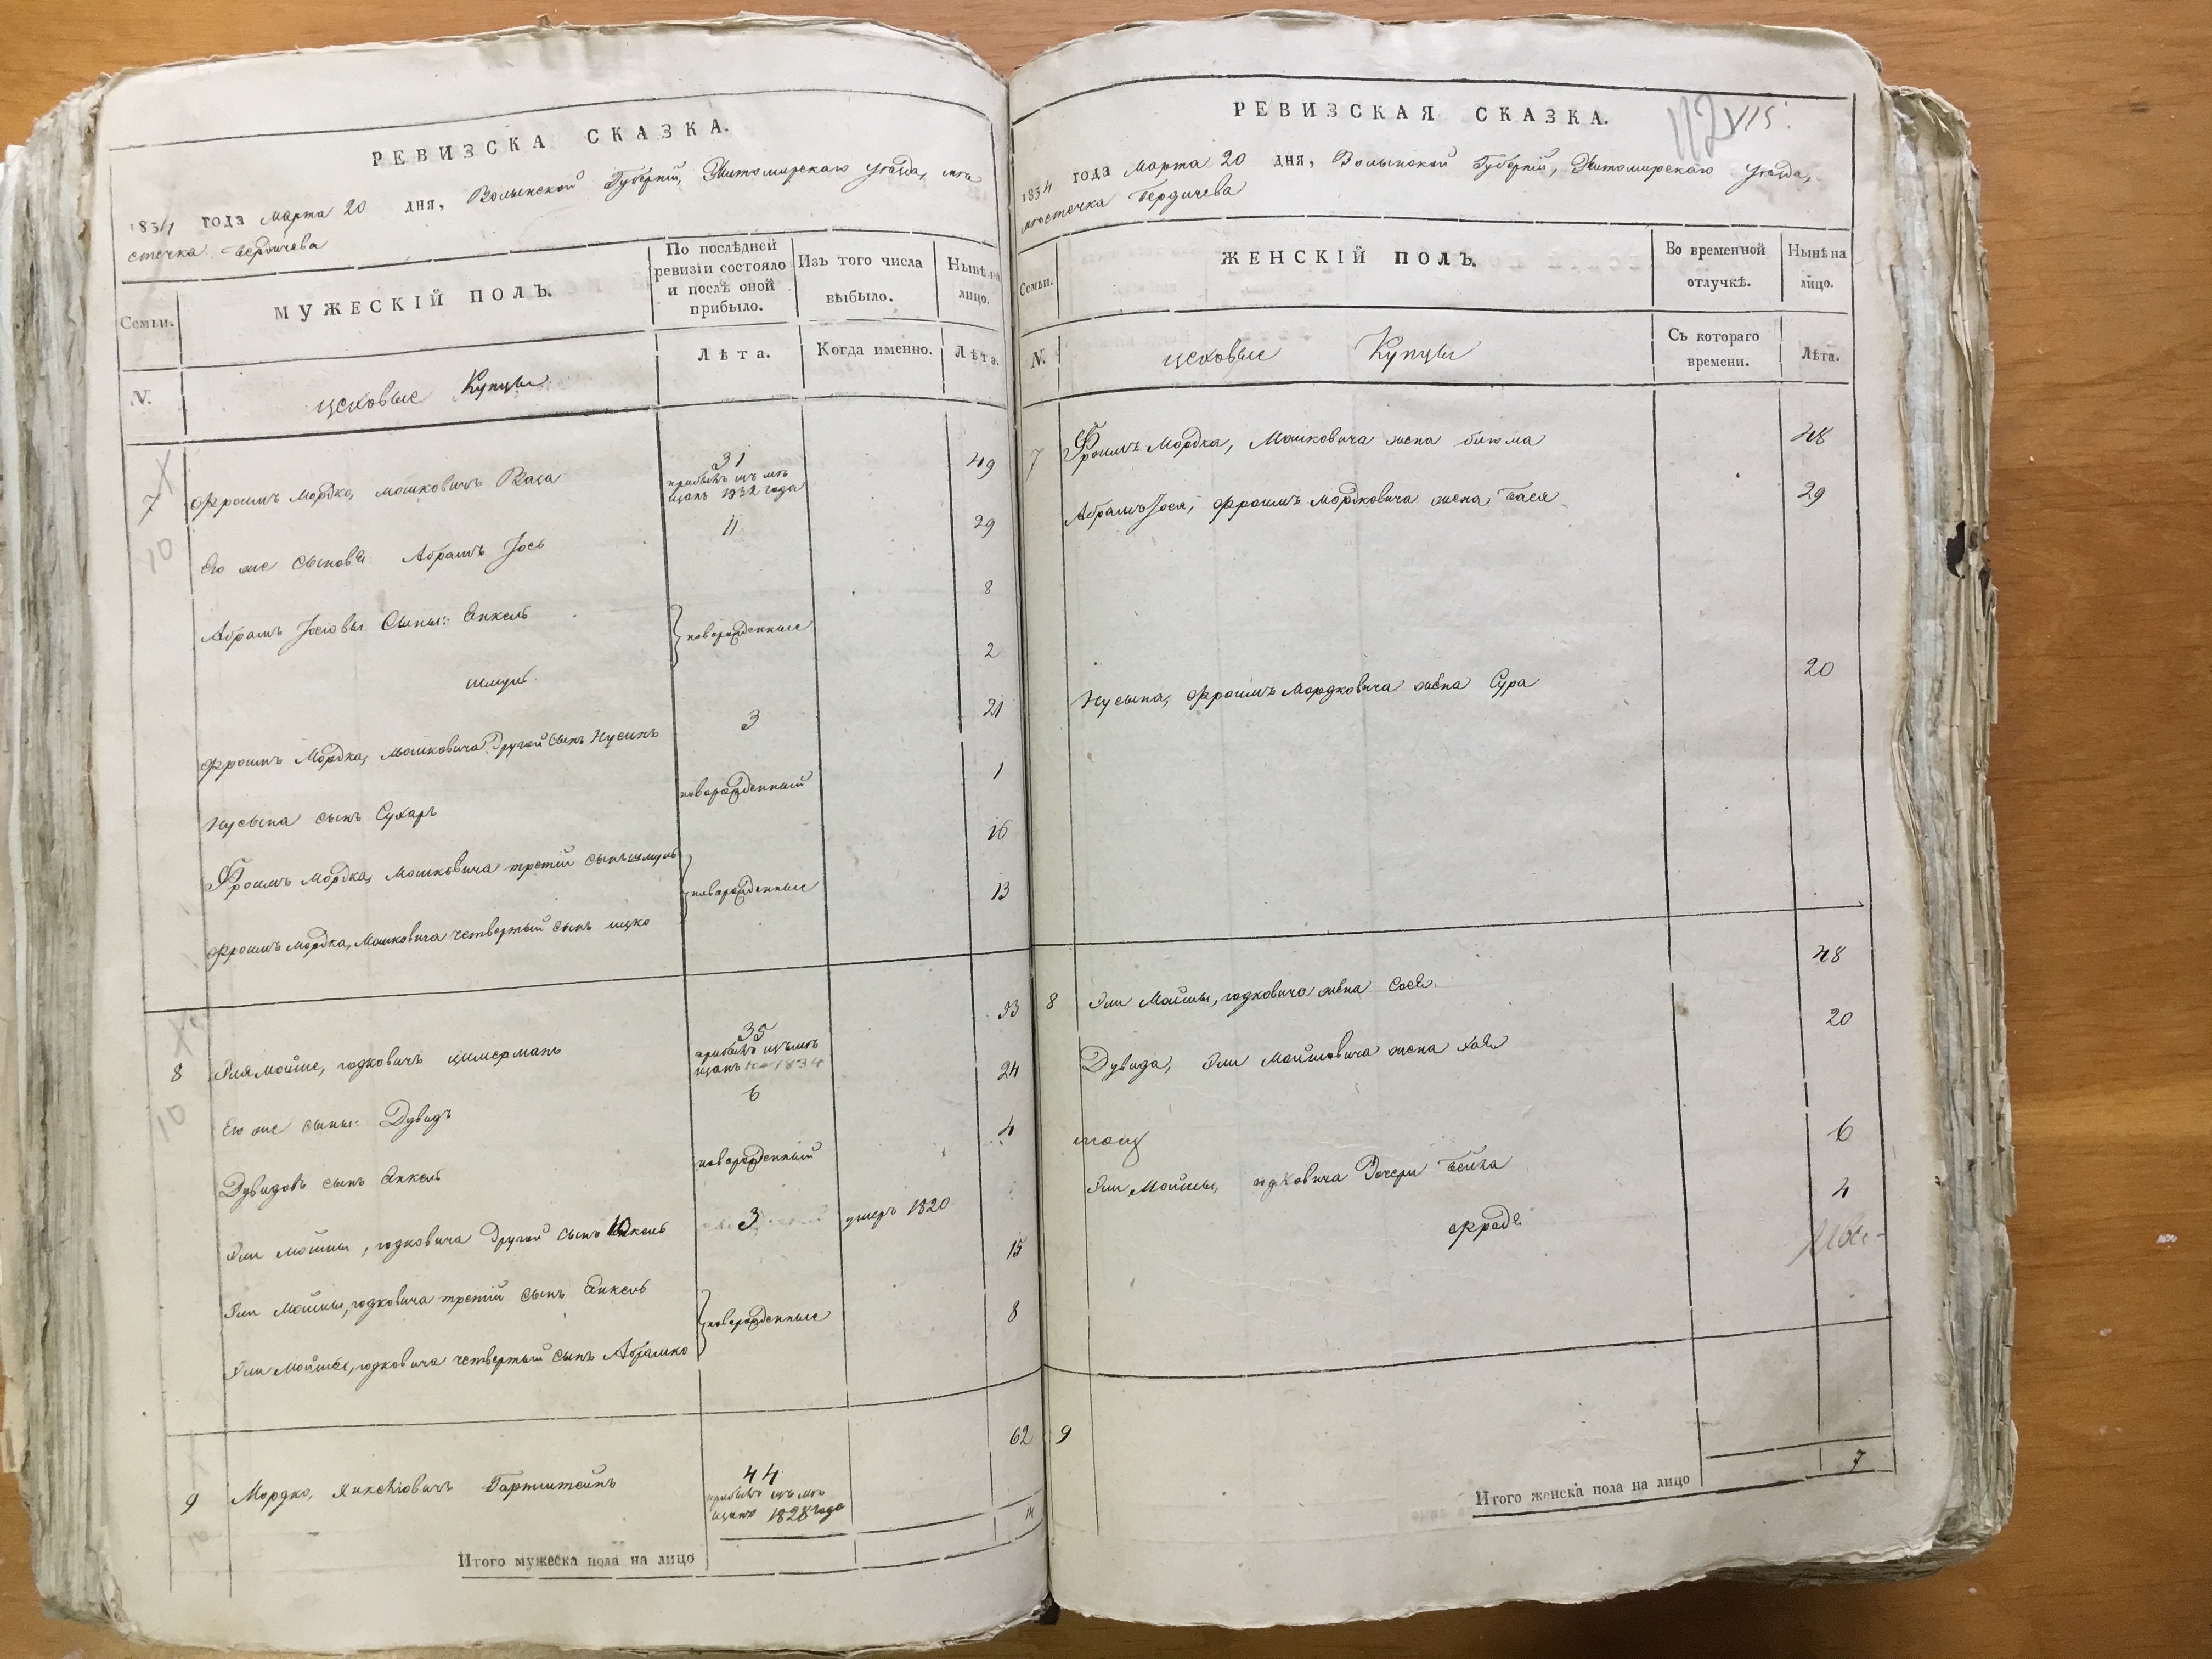 РЕВИЗСКА СКАЗКА.
1834 года Марта 20 дня, Волынской Губерніи, Житомирскаго уѣзда, мѣ
стечка Бердичева
Семьи.
МУЖЕСКІЙ ПОЛЪ.
По послѣдней
ревизіи состояло
и послѣ оной
прибыло.
Изъ того числа
выбыло.
Нынѣ на
лицо.
N.
Цеховые Купцы
Лѣта.
Когда именно.
Лѣта.
7
10
Фроимъ Мордко, Мошковичъ
31
прибылъ изъ мѣ
щанъ 1832 года
49
Его же сыновья: Абрамъ Іось
11
29
Абрамъ Іосіовы Сыны: Янкель
новорожденные
8
Шмуль
2
Фроимъ Мордка, Мошковича другой сынъ Нусинъ
3
21
Нусына сынъ Сухаръ
новорожденный
1
Фроимъ Мордка, Мошковича третій сынъ Шмуль
новорожденные
16
Фроимъ Мордка, Мошковича четвертый сынъ Ицко
13
8
10
Эля Мойше, Годковичъ Цимерманъ
35
прибылъ изъ мѣ
щанъ 1834
53
Его же сыны: Дувидъ
6
24
Дувидовъ сынъ Янкель
новорожденный
4
Эли Мойшы, Годковича другой сынъ
3
умеръ 1820
Эли Мойшы, Годковича третій сынъ Янкель
новорожденные
15
Эли Мойшы, Годковича четвертый сынъ Абрамко
8
9
Мордко, Янкеліовичъ
44
прибылъ изъ мѣ
щанъ 1828 года
62
Итого мужеска пола на лицо
14
РЕВИЗСКАЯ СКАЗКА.
112
1834 года Марта 20 дня, Волынской Губерніи, Житомирскаго уѣзда,
мѣстечка Бердичева
Семьи.
ЖЕНСКІЙ ПОЛЪ.
Во временной
отлучкѣ.
Нынѣ на
лицо.
N.
Цеховые Купцы
Съ котораго
времени.
Лѣта.
7
Фроимъ Мордка, Мошковича жена Блюма
48
Абрамъ Іося, Фроимъ Мордковича жена Бася
29
Нусына, Фроимъ Мордковича жена Сура
20
8
Эли Мойшы, Годковича жена Сося
48
Дувида, Эли Мойшовича жена Хая
20
Эли Мойшы, Годковича дочери Бейла
6
Фрада
4
9
Итого женска пола на лицо
7